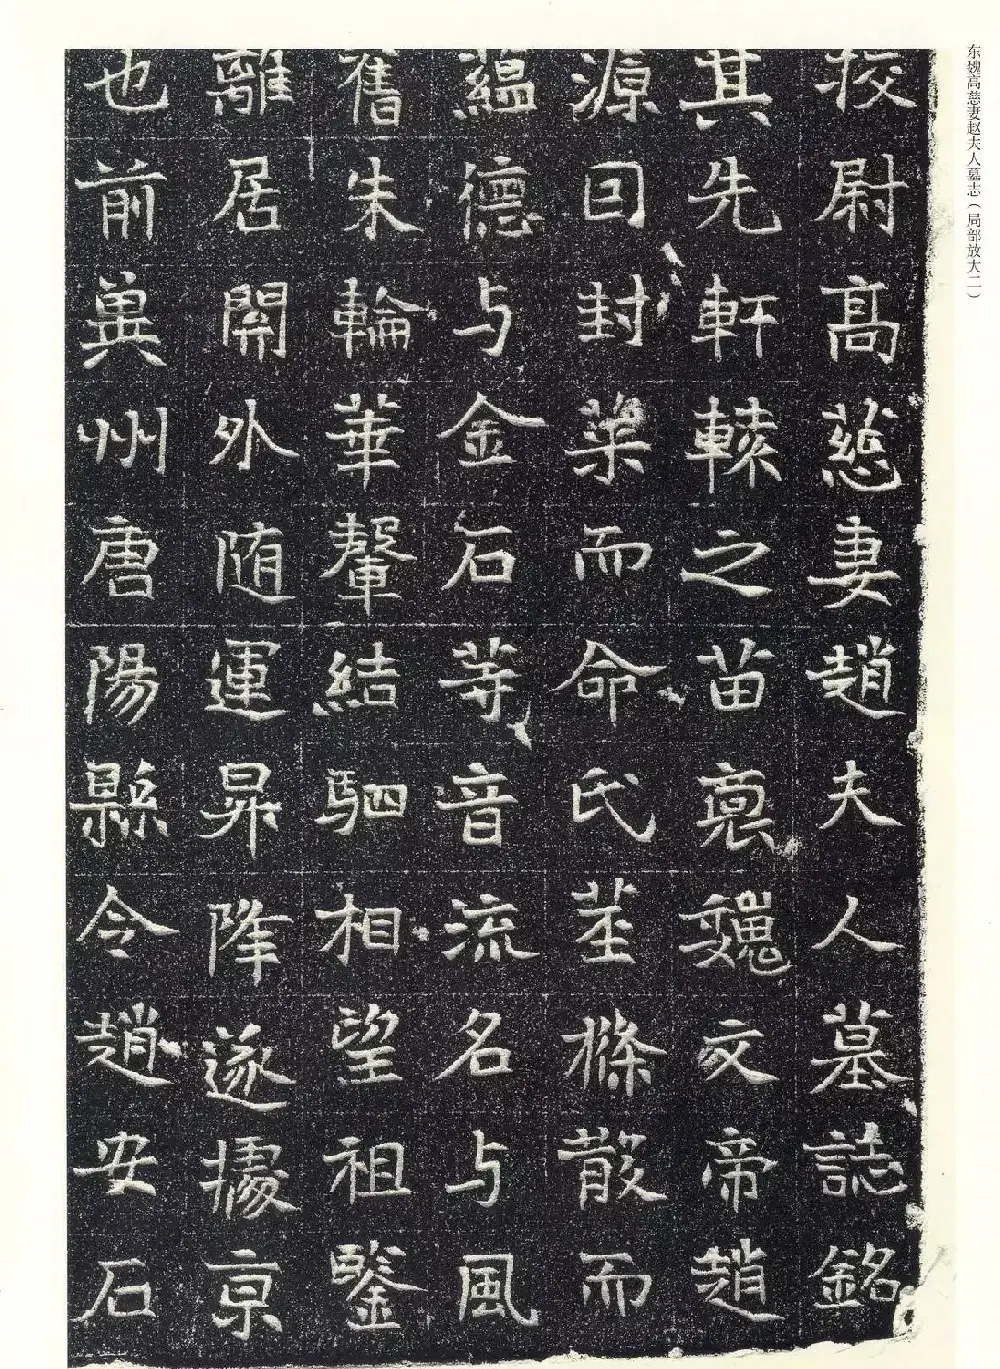 东魏高慈妻赵夫人墓志（局部放大二）
校尉高慈妻趙夫人墓誌銘
其先軒轅之苗裔魏文帝趙
源因封菜而命氏莖條散而
蘊德与金石等音流名与風
舊朱輪華輦結駟相望祖鑒
離居關外随運昇降遂據京
也前兾州唐陽縣令趙安石